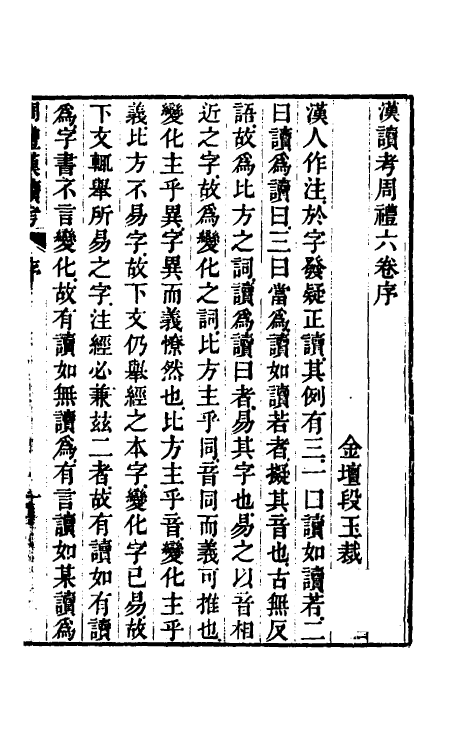 漢讀考周禮六卷序
金壇段玉裁
漢人作注於字發疑正讀其例有三一曰讀如讀若二
曰讀爲讀曰三曰當爲讀如讀若者擬其音也古無反
語故爲比方之詞讀爲讀曰者易其字也易之以音相
近之字故爲變化之詞比方主乎同音同而義可推也
變化主乎異字異而義憭然也比方主乎音變化主乎
義比方不易字故下文仍舉經之本字變化字已易故
下文輒舉所易之字注經必兼茲二者故有讀如有讀
爲字書不言變化故有讀如無讀爲有言讀如某讀爲
周禮漢讀考 序